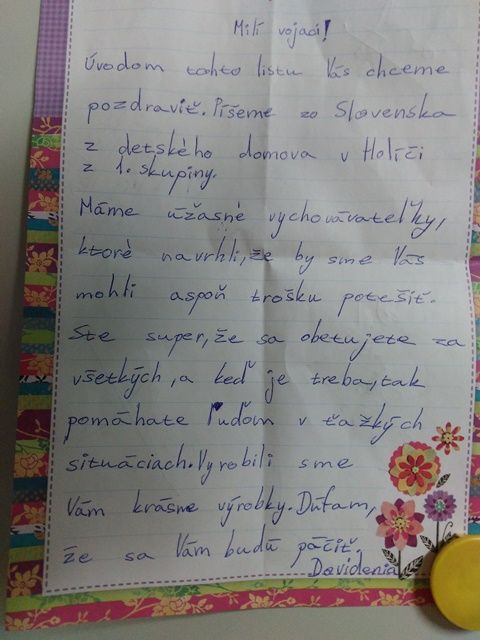 Milí vojaci!
Úvodom tohto listu Vás chceme
pozdraviť. Píšeme zo Slovenska
z detského domova v Holíči
z 1. skupiny.
Máme úžasné vychovávateľky,
ktoré navrhli, že by sme Vás
mohli aspoň trošku potešiť.
Ste super, že sa obetujete za
všetkých, a keď je treba, tak
pomáhate ľuďom v ťažkých
situáciach. Vyrobili sme
Vám krásne výrobky. Dúfam,
že sa Vám budú páčiť
Davidenia